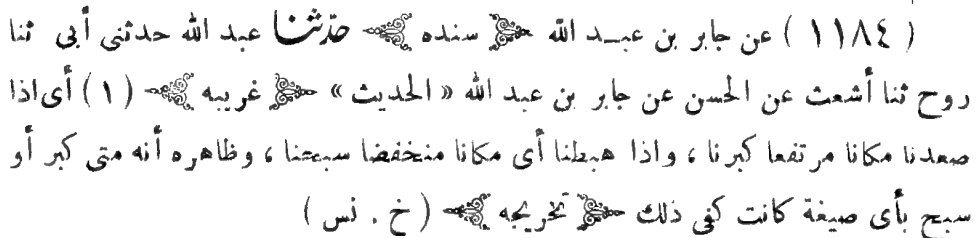 ( ١١٨٤ ) عن جابر بن عبـد الله ﴿ سنده ﴾ حدثنا عبد الله حدثنى أبى ثنا
روح ثنا أشعث عن الحسن عن جابر بن عبد الله « الحديث » ﴿ غريبه ﴾ ( ١ ) أى اذا
صعدنا مكانا مرتفعا كبرنا ، واذا هبطنا أى مكانا منخفضا سبحنا ، وظاهره أنه متى كبر أو
سبح بأى صيغة كانت كفى ذلك ﴿ تخريجه ﴾ ( خ . نس )